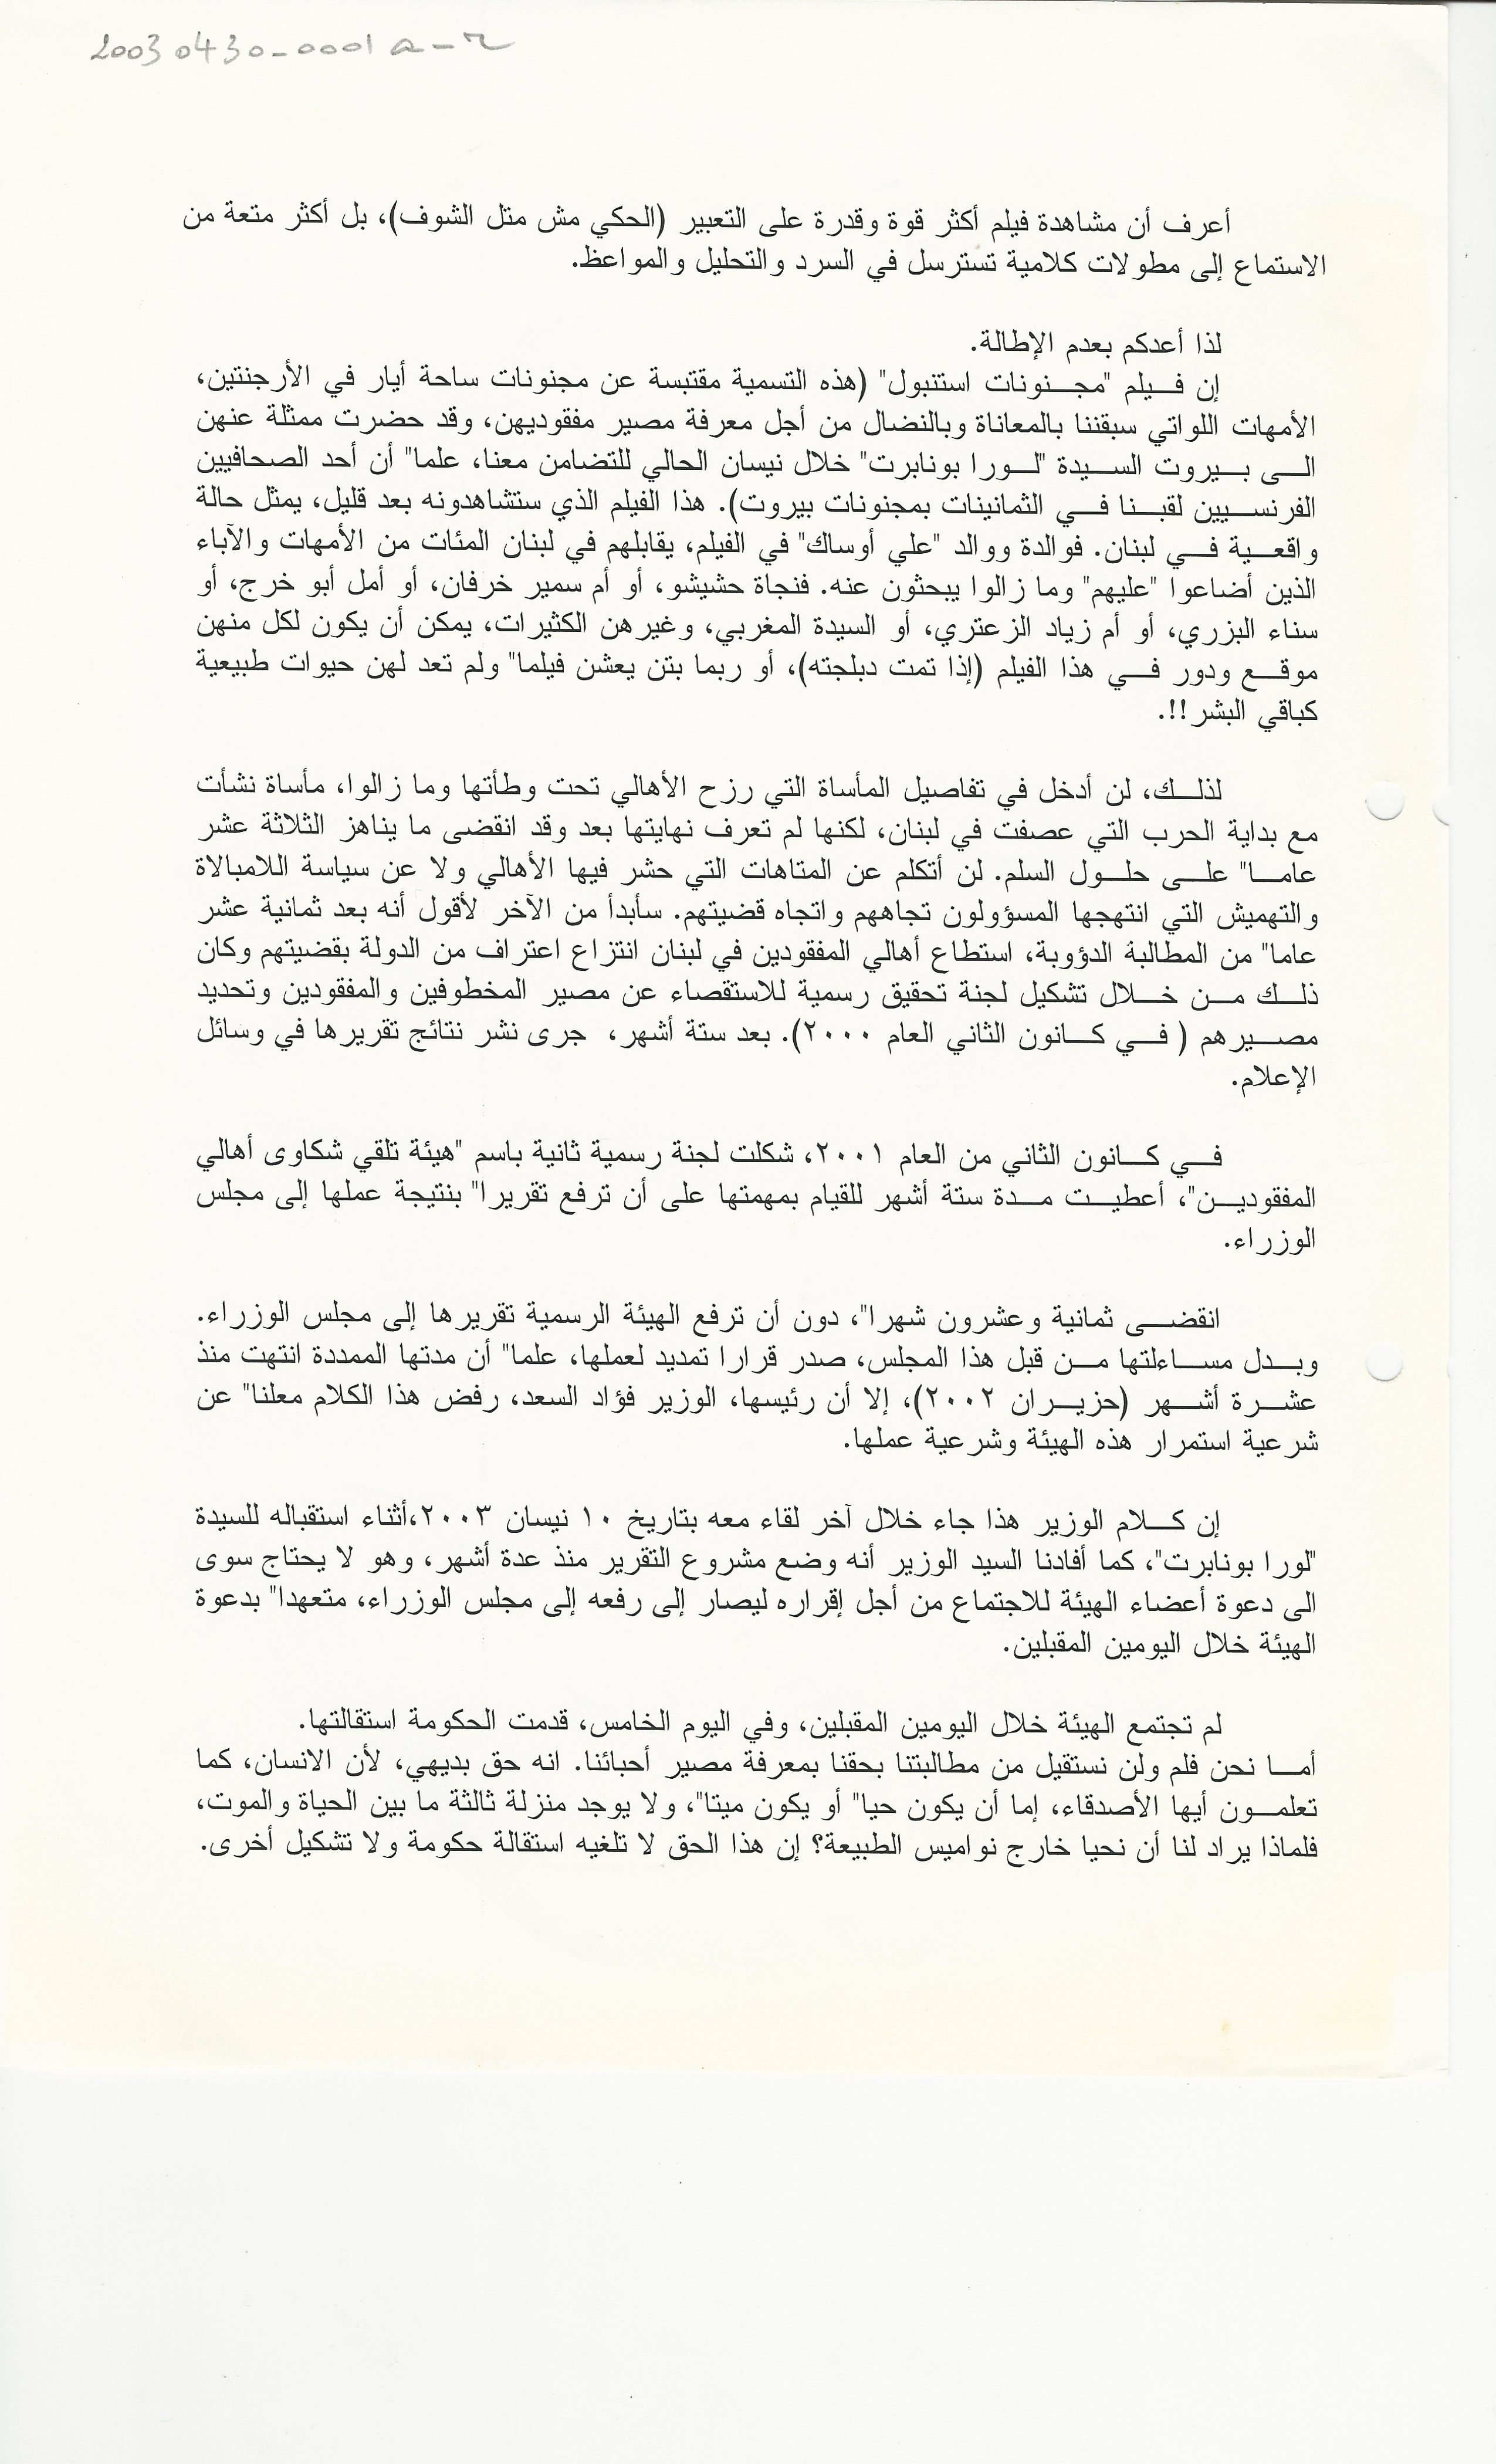 20030430-0001a-r
أعرف أن مشاهدة فيلم أكثر قوة وقدرة على التعبير (الحكي مش متل الشوف)، بل أكثر متعة من
الاستماع إلى مطولات كلامية تسترسل في السرد والتحليل والمواعظ.
لذا أعدكم بعدم الإطالة.
إن فيلم "مجنونات استنبول" (هذه التسمية مقتبسة عن مجنونات ساحة أيار في الأرجنتين،
الأمهات اللواتي سبقننا بالمعاناة وبالنضال من أجل معرفة مصير مفقوديهن، وقد حضرت ممثلة عنهن
الى بيروت السيدة "لورا بونابرت" خلال نيسان الحالي للتضامن معنا، علما" أن أحد الصحافيين
الفرنسيين لقبنا في الثمانينات بمجنونات بيروت). هذا الفيلم الذي ستشاهدونه بعد قليل، يمثل حالة
واقعية في لبنان. فوالدة ووالد "علي أوساك" في الفيلم، يقابلهم في لبنان المئات من الأمهات والآباء
الذين أضاعوا "عليهم" وما زالوا يبحثون عنه. فنجاة حشيشو، أو أم سمير خرفان، أو أمل أبو خرج، أو
سناء البزري، أو أم زياد الزعتري، أو السيدة المغربي، وغيرهن الكثيرات، يمكن أن يكون لكل منهن
موقع ودور في هذا الفيلم (إذا تمت دبلجته)، أو ربما بتن يعشن فيلما" ولم تعد لهن حيوات طبيعية
كباقي البشر!!.
لذلك، لن أدخل في تفاصيل المأساة التي رزح الأهالي تحت وطأتها وما زالوا، مأساة نشأت
مع بداية الحرب التي عصفت في لبنان، لكنها لم تعرف نهايتها بعد وقد انقضى ما يناهز الثلاثة عشر
عاما" على حلول السلم. لن أتكلم عن المتاهات التي حشر فيها الأهالي ولا عن سياسة اللامبالاة
والتهميش التي انتهجها المسؤولون تجاههم واتجاه قضيتهم. سأبدأ من الآخر لأقول أنه بعد ثمانية عشر
عاما" من المطالبة الدؤوبة، استطاع أهالي المفقودين في لبنان انتزاع اعتراف من الدولة بقضيتهم وكان
ذلك من خلال تشكيل لجنة تحقيق رسمية للاستقصاء عن مصير المخطوفين والمفقودين وتحديد
مصيرهم ( في كانون الثاني العام ٢٠٠٠). بعد ستة أشهر،  جرى نشر نتائج تقريرها في وسائل
الإعلام.
في كانون الثاني من العام ٢٠٠١، شكلت لجنة رسمية ثانية باسم "هيئة تلقي شكاوى أهالي
المفقودين"، أعطيت مدة ستة أشهر للقيام بمهمتها على أن ترفع تقريرا" بنتيجة عملها إلى مجلس
الوزراء.
انقضى ثمانية وعشرون شهرا"، دون أن ترفع الهيئة الرسمية تقريرها إلى مجلس الوزراء.
وبدل مساءلتها من قبل هذا المجلس، صدر قرارا تمديد لعملها، علما" أن مدتها الممددة انتهت منذ
عشرة أشهر (حزيران ٢٠٠٢)، إلا أن رئيسها، الوزير فؤاد السعد، رفض هذا الكلام معلنا" عن
شرعية استمرار هذه الهيئة وشرعية عملها.
إن كلام الوزير هذا جاء خلال آخر لقاء معه بتاريخ ١٠ نيسان ٢٠٠٣،أثناء استقباله للسيدة
"لورا بونابرت"، كما أفادنا السيد الوزير أنه وضع مشروع التقرير منذ عدة أشهر، وهو لا يحتاج سوى
الى دعوة أعضاء الهيئة للاجتماع من أجل إقراره ليصار إلى رفعه إلى مجلس الوزراء، متعهدا" بدعوة
الهيئة خلال اليومين المقبلين.
لم تجتمع الهيئة خلال اليومين المقبلين، وفي اليوم الخامس، قدمت الحكومة استقالتها.
أما نحن فلم ولن نستقيل من مطالبتنا بحقنا بمعرفة مصير أحبائنا. انه حق بديهي، لأن الانسان، كما
تعلمون أيها الأصدقاء، إما أن يكون حيا" أو يكون ميتا"، ولا يوجد منزلة ثالثة ما بين الحياة والموت،
فلماذا يراد لنا أن نحيا خارج نواميس الطبيعة؟ إن هذا الحق لا تلغيه استقالة حكومة ولا تشكيل أخرى.